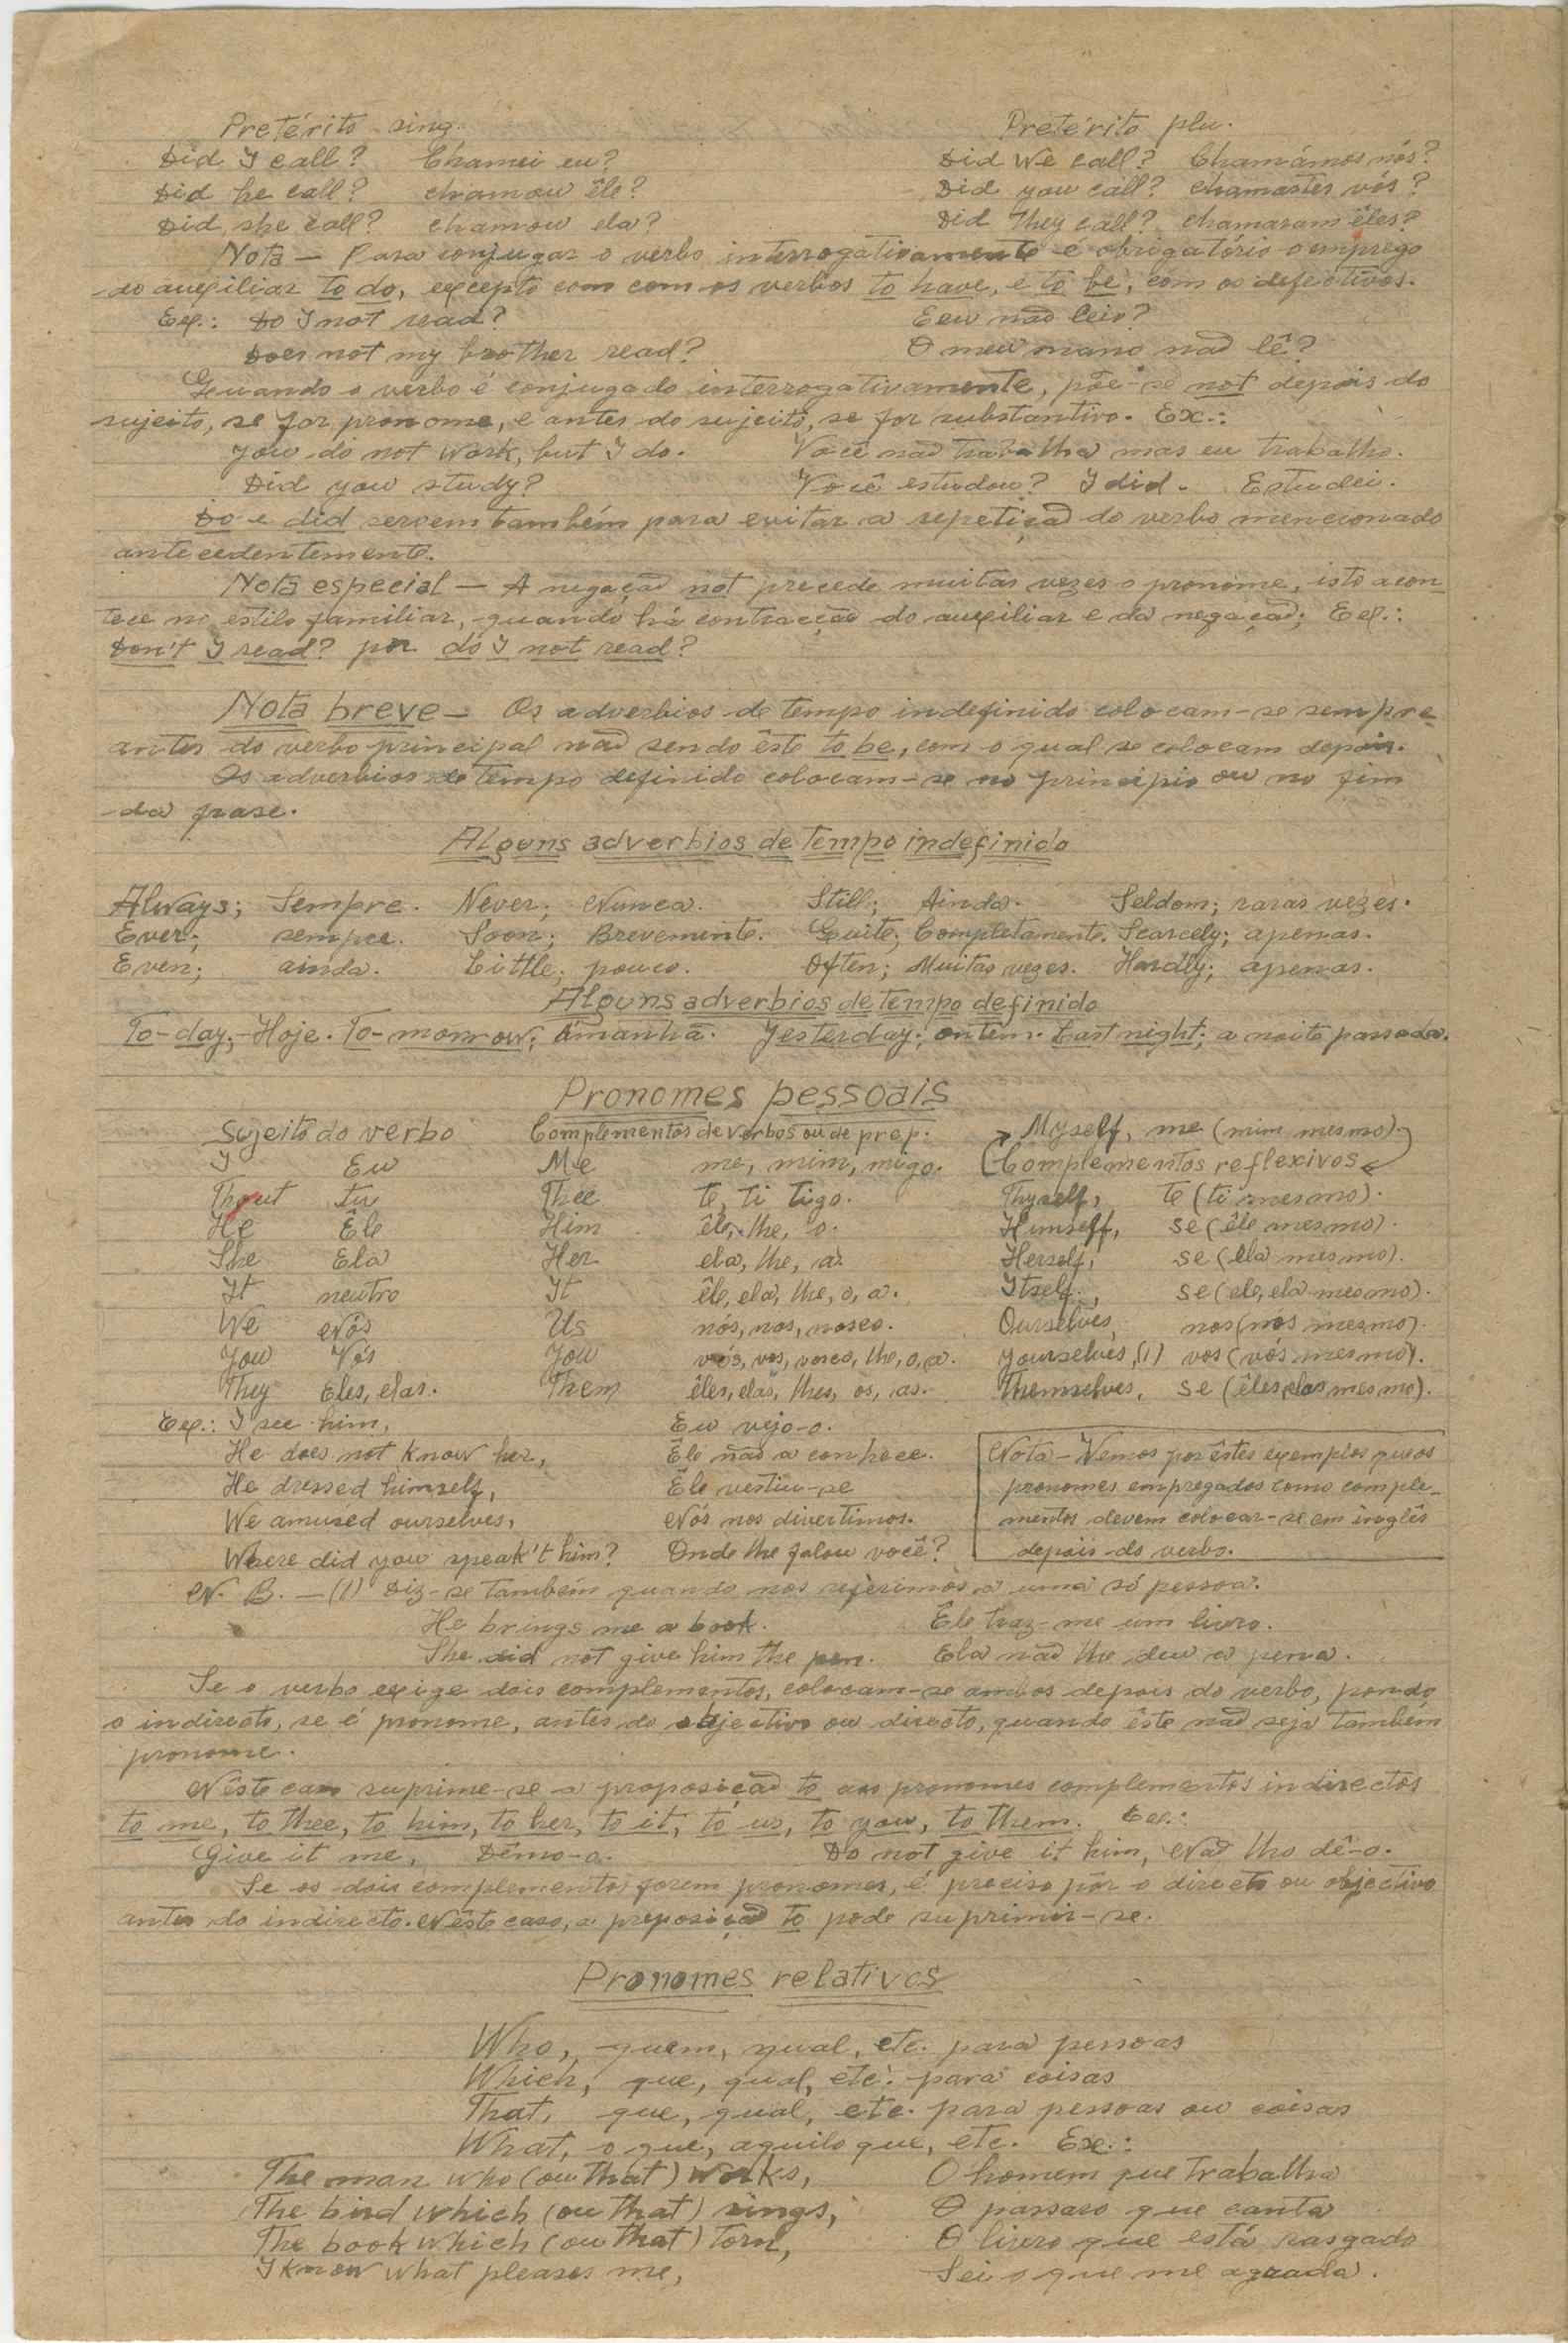 Pretérito sing. Pretérito plu.
Did I call? Chamei eu? Did We call? Chamámos nós?
Did he call? chamou êle? Did you call? chamastes vós?
Did she call? chamou ela? Did They call? chamaram êles?
Nota — Para conjugar o verbo interrogativamente é obrigatório o emprego
do auxiliar to do, excepto com com os verbos to have, e to be, com os defectivos.
Ex.: Do I not read? Eeu não leio?
Does not my brother read? O meu mano não lê?
Quando o verbo é conjugado interrogativamente, põe-se not depois do
sujeito, se for pronome, e antes do sujeito, se for substantivo. Ex.:
You do not work, but I do. Você não trabalha mas eu trabalho.
Did you study? Você estudou? I did. Estudei.
Do e did servem também para evitar a repetição do verbo mencionado
antecedentemente.
Nota especial — A negação not precede muitas vezes o pronome, isto acon-
tece no estilo familiar, quando há contracção do auxiliar e da negação; Ex.:
Don't I read? por do I not read?
Nota breve — Os adverbios de tempo indefinido colocam-se sempre
antes do verbo principal não sendo êste to be, com o qual se colocam depois.
Os adverbios de tempo definido colocam-se no principio ou no fim
da frase.
Alguns adverbios de tempo indefinido
Always; Sempre. Never; Nunca. Still; Ainda. Seldom; raras vezes.
Ever; sempre. Soon; Brevemente. Quite; Completamente. Scarcely; apenas.
Even; ainda. Little; pouco. Often; Muitas vezes. Hardly; apenas.
Alguns adverbios de tempo definido
To-day; Hoje. To-morrow; Amanhã. Yesterday; ontem. Last night; a noite passada.
Pronomes pessoais
Sujeito do verbo Complementos de verbos ou de prep. Myself, me (mim mesmo).
I Eu Me me, mim, migo. (Complementos reflexivos
Thout tu Thee te, ti tigo. Thyself, te (ti mesmo).
He Êle Him êle, lhe, o. Himself, se (êle mesmo).
She Ela Her ela, lhe, a. Herself, se (ela mesmo).
It neutro It êle, ela, lhe, o, a. Itself, se (ele, ela mesmo).
We Nós Us nós, nos, nosco. Ourselves, nos (nós mesmo).
You Vós You vós, vos, vosco, lhe, o, a. yourselves, (1) vos (vós mesmo).
They Eles, elas. Them êles, elas, lhes, os, as. Themselves, se (êles, elas mesmo).
Ex.: I see him, Eu vejo-o.
He does not know her, Êle não a conhece. Nota — Vemos por êstes exemplos que os
He dressed himself, Êle vestiu-se pronomes empregados como comple-
We amused ourselves, Nós nos divertimos. mentos devem colocar-se em inglês
Where did you speak't him? Onde lhe falou você? depois do verbo.
N. B. — (1) Diz-se também quando nos referimos a uma só pessoa.
He brings me a book. Êle traz-me um livro.
She did not give him the pen. Ela não lhe deu a pena.
Se o verbo exige dois complementos, colocam-se ambos depois do verbo, pondo
o indirecto, se é pronome, antes do objectivo ou directo, quando êste não seja também
pronome.
Nêste caso suprime-se a proposição to aos pronomes complementos indirectos
to me, to thee, to him, to her, to it, to us, to you, to them. Ex.:
Give it me, Dêmo-o. Do not give it him, Não lho dê-o.
Se os dois complementos forem pronomes, é preciso pôr o directo ou objectivo
antes do indirecto. Nêste caso, a preposição to pode suprimir-se.
Pronomes relativos
Who, quem, qual, etc. para pessoas
Which, que, qual, etc. para coisas
That, que, qual, etc. para pessoas ou coisas
What, o que, aquilo que, etc. Ex.:
The man who (ou that) works, O homem que trabalha
The bird which (ou that) sings, O passaro que canta
The book which (ou that) torn, O livro que está rasgado
I know what pleases me, Sei o que me agrada.